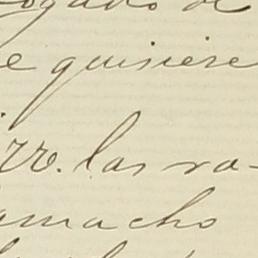 ogado de
e quisiere
rr. las ra-
amacho